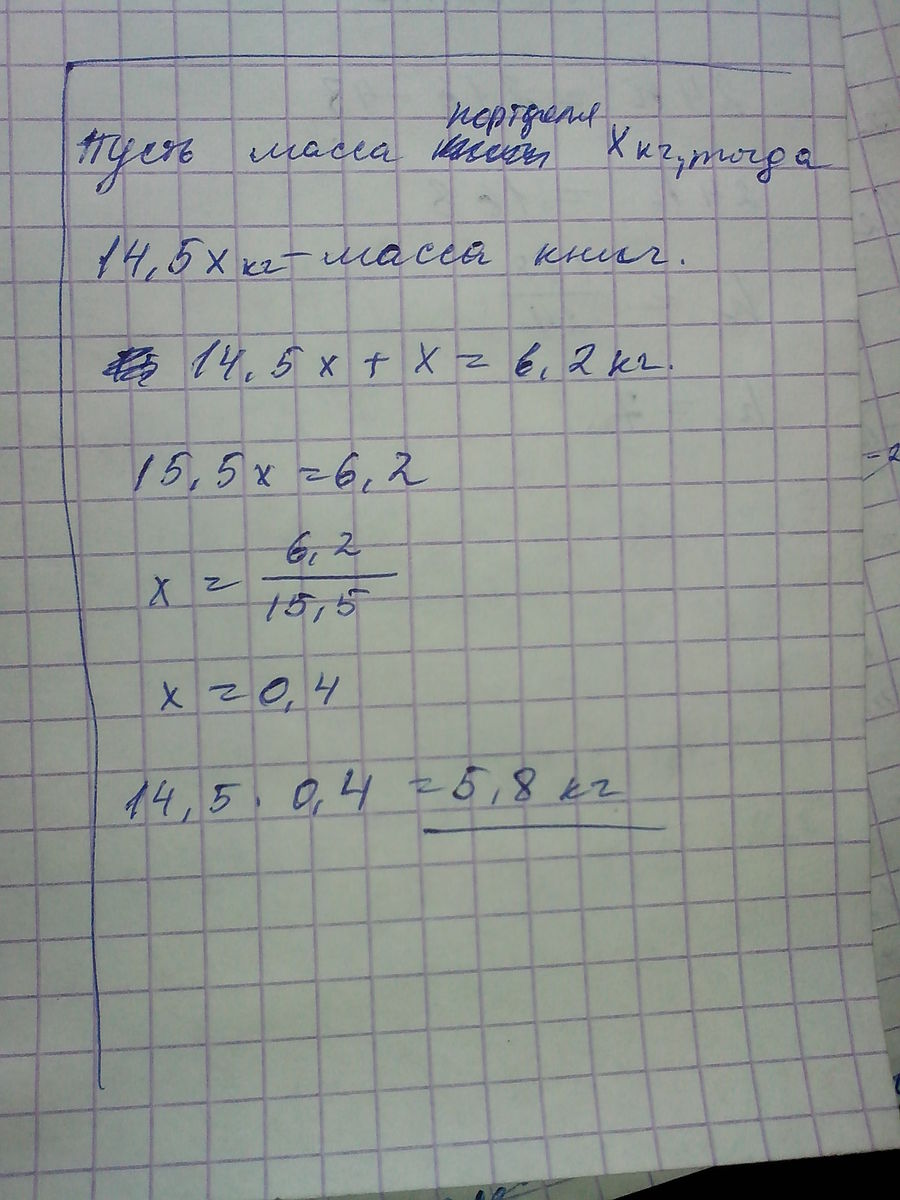 портфеля
Пусть масса х кг, тогда
14,5х кг - масса книг.
14,5 х + х = 6,2 кг.
15,5х = 6,2
х = 6,2 / 15,5
х = 0,4
14,5 · 0,4 = 5,8 кг